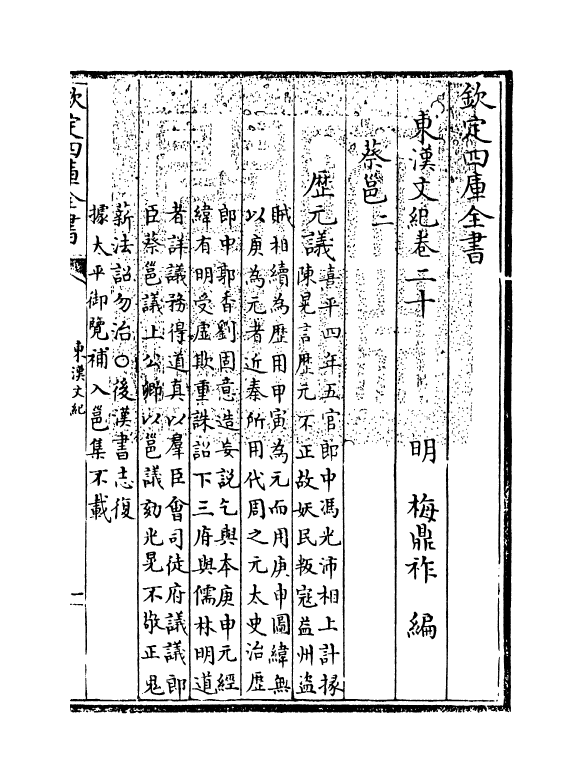 欽定四庫全書
東漢文紀卷二十
明 梅鼎祚 編
蔡邕二
歴元議
熹平四年五官郎中馮光沛相上計掾
陳晃言歴元不正故妖民叛寇益州盜
賊相續為歴用甲寅為元而用庚申圖緯無
以庚為元者近秦所用代周之元太史治歴
郎中郭香劉固意造妄説乞與本庚申元經
緯有明受虛欺重誅詔下三府與儒林明道
者詳議務得道真以羣臣會司徒府議議郎
臣蔡邕議上公卿以邕議劾光晃不敬正鬼
薪法詔勿治○後漢書志復
據太平御覽補入邕集不載
欽定四庫全書
東漢文紀